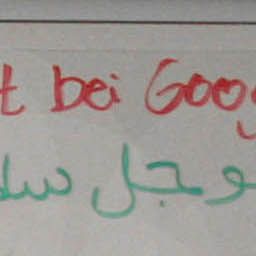 t bei Goog
وجل سلا